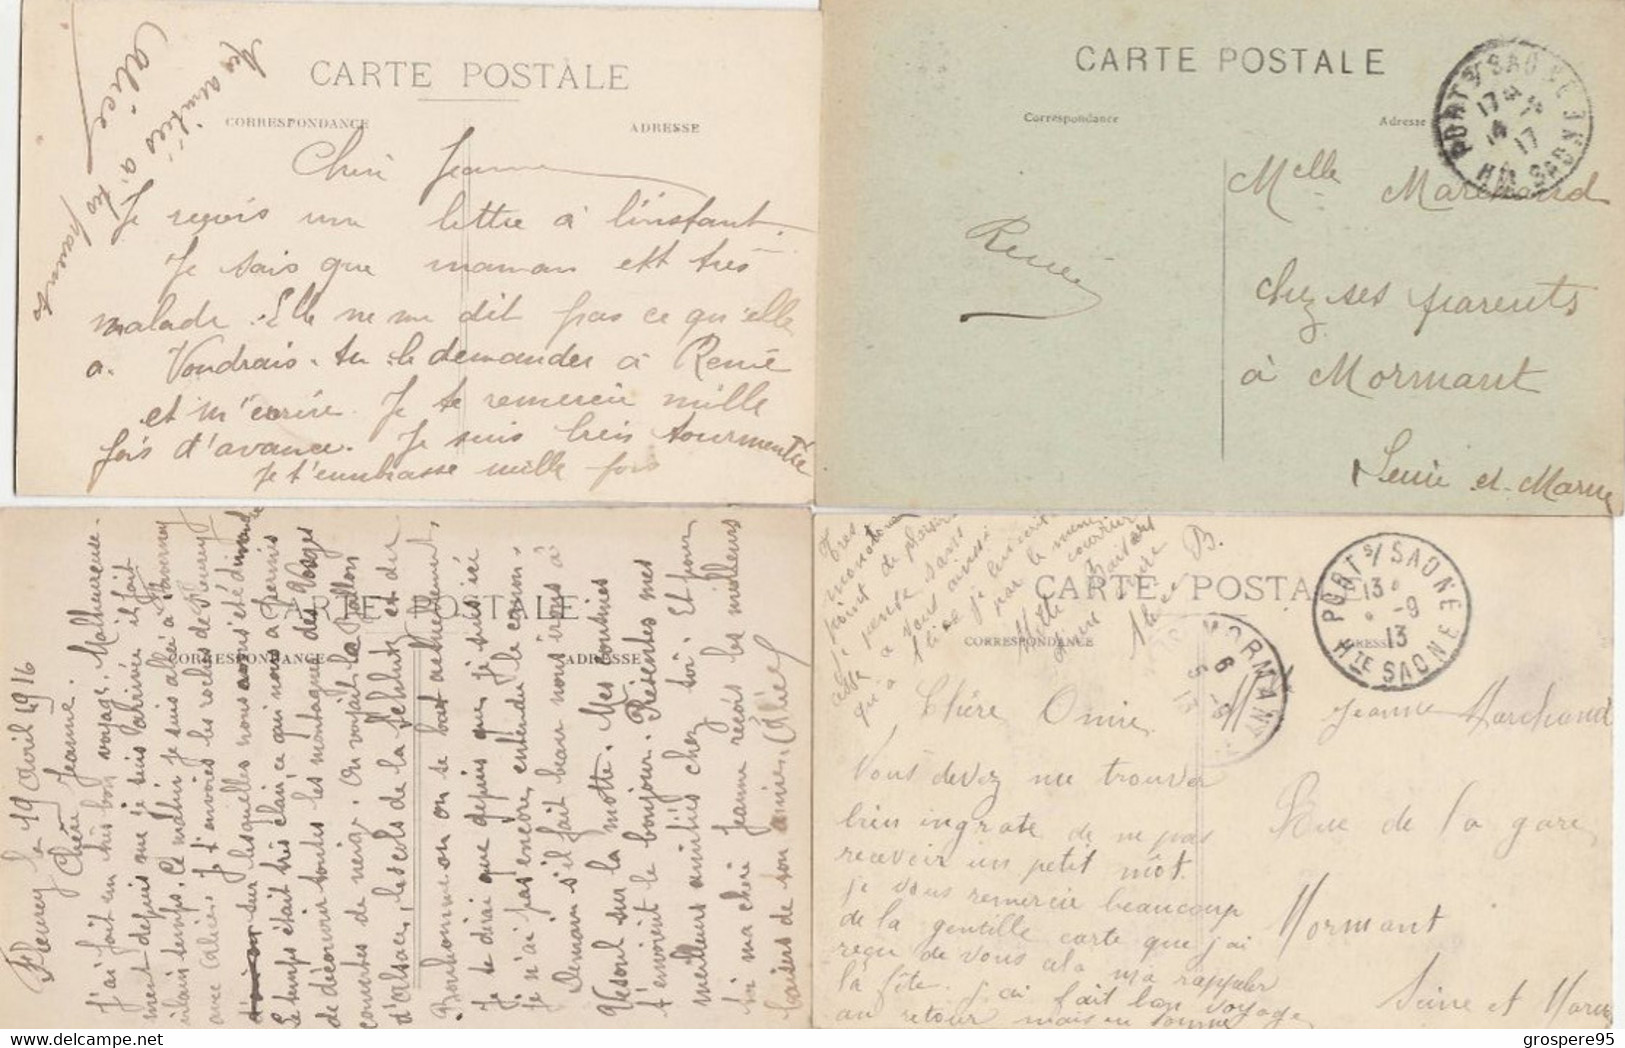 CARTE POSTALE
CORRESPONDANCE
ADRESSE
amitiés à tes parents
Alice
Cheri Jeanne
Je reçois un lettre à l'instant.
Je sais que maman est très
malade. Elle ne me dit pas ce qu'elle
a. Voudrais-tu le demander à René
et m'écrire. Je te remercie mille
fois d'avance. Je suis bien tourmentée
Je t'embrasse mille fois
CARTE POSTALE
Correspondance
Adresse
PORT S/ SAONE
17
17
HTE SAONE
Melle Marchand
René
chez ses parents
à Mormant
Seine et Marne
CARTE POSTALE
CORRESPONDANCE
ADRESSE
Fleurey le 19 avril 1916
Chère Jeanne.
J'ai fait un très bon voyage. Malheureuse-
ment depuis que je suis arrivée il fait
vilain temps. Ce matin je suis allée à Faverney
avec Alice. Je t'envoies les roches de Fleurey
sur lesquelles nous avons été dimanche
Le temps était très clair ce qui nous a permis
de découvrir toutes les montagnes des Vosges
couvertes de neige. On voyait le Ballon
d'Alsace, les cols de la Schlucht et du
Bonhomme on se bat actuellement.
Je te dirai que depuis que je suis ici
je n'ai pas encore entendu le canon.
Demain s'il fait beau nous irons à
Vesoul sur la motte. Mes cousines
t'envoient le bonjour. Présentes mes
meilleurs amitiés chez toi. Et pour
toi ma chère Jeanne reçois les meilleurs
baisers de ton amie.
CARTE POSTALE
CORRESPONDANCE
ADRESSE
PORT S/ SAONE
13
-9
13
HTE SAONE
MORMANT
Alice B.
Chère Omie
Vous devez me trouver
bien ingrate de ne pas
recevoir un petit môt.
je vous remercie beaucoup
de la gentille carte que j'ai
reçu de vous
la fête. j'ai fait bon voyage
au retour mais
Mlle Jeanne Marchand
Rue de la gare
Mormant
Seine et Marne
grospere95